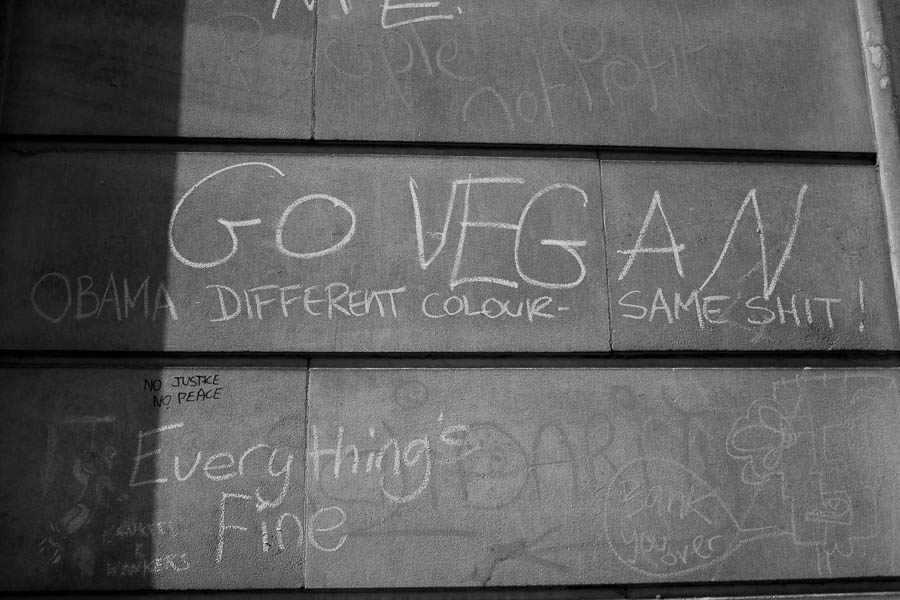 ME!
People
not Profit
GO VEGAN
OBAMA - DIFFERENT COLOUR - SAME SHIT!
NO JUSTICE
NO PEACE
Everything's
Fine
BANKERS
WANKERS
Bank
you over